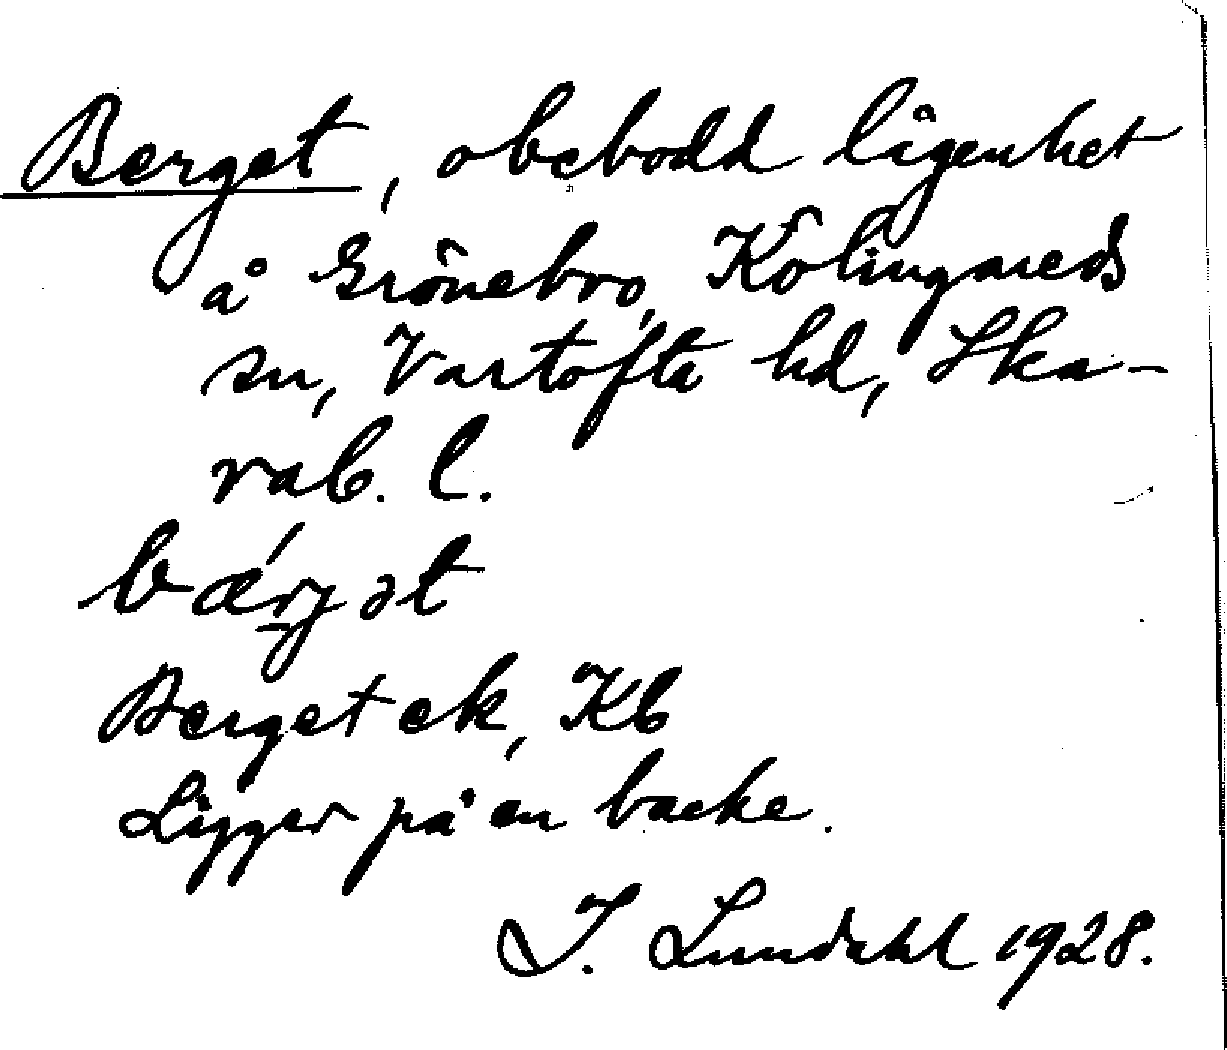 Berget, obebodd lägenhet
å Grönebro, Kölingareds
sn, Vartofta hd, Ska-
rab. l.
bǽrjət
Berget ek, Kb
Ligger på en backe.
I. Lundahl 1928.